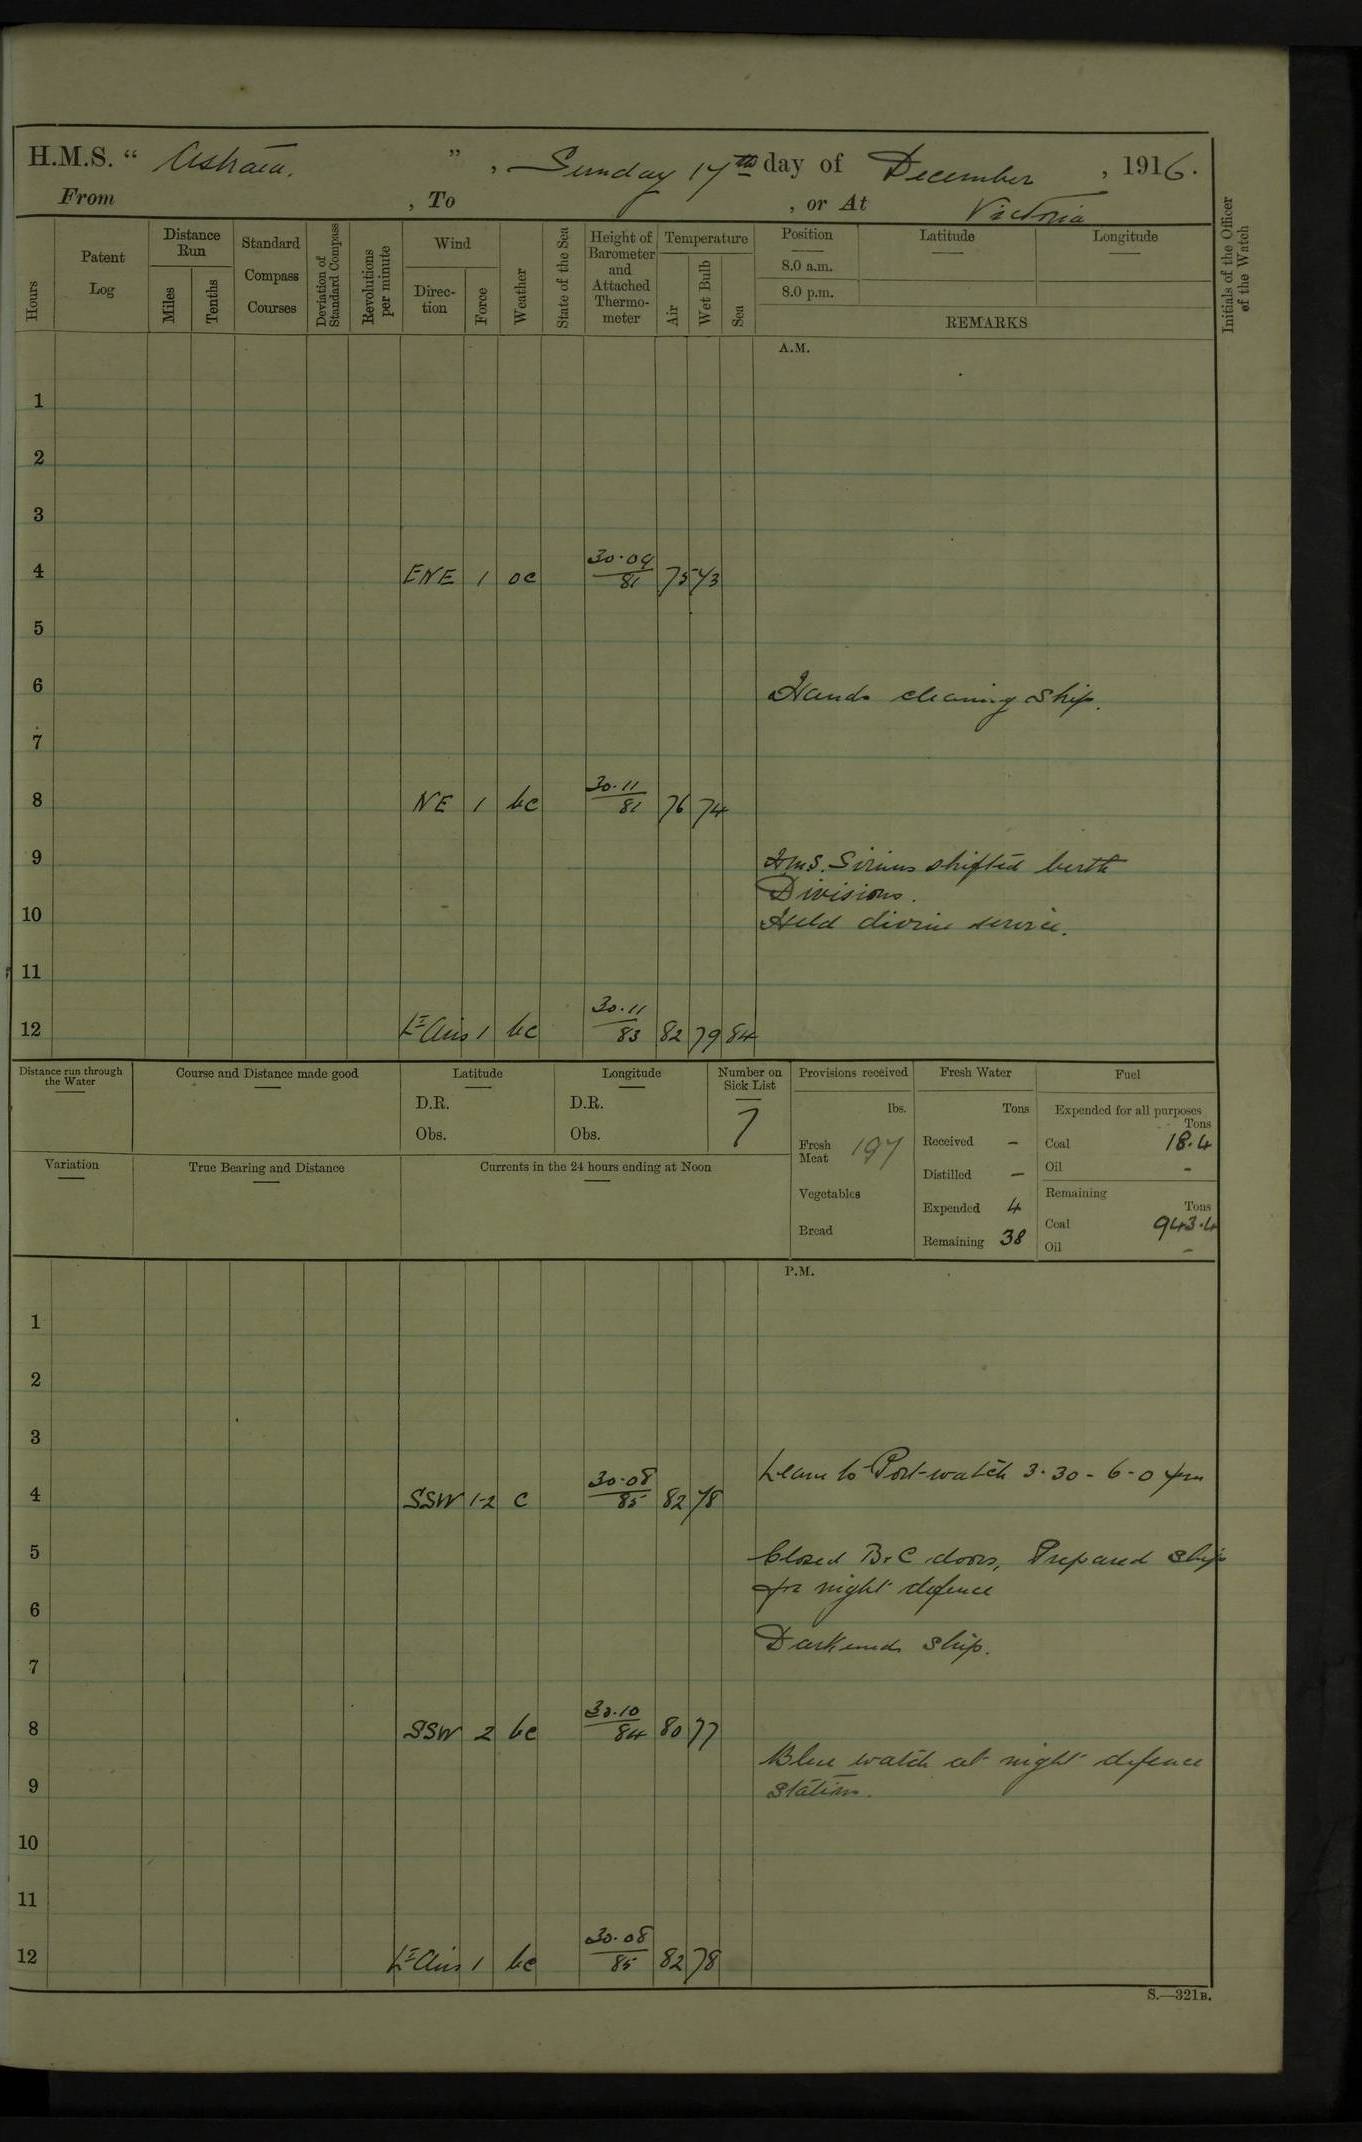 H.M.S. “ Astraea. ” , Sunday 17th day of December , 1916.
From , To , or At Victoria
Hours
Patent Log
Distance Run
Miles
Tenths
Standard Compass Courses
Deviation of Standard Compass
Revolutions per minute
Wind
Direc-tion
Force
Weather
State of the Sea
Height of Barometer and Attached Thermo-meter
Temperature
Air
Wet Bulb
Sea
Position
8.0 a.m.
8.0 p.m.
Latitude
Longitude
REMARKS
Initials of the Officer of the Watch
A.M.
1
2
3
4 ENE 1 oc 30.09/81 75 73
5
6 Hands cleaning ship.
7
8 NE 1 bc 30.11/81 76 74
9 H.M.S. Sirius shifted berth
Divisions.
10 Held divine service.
11
12 Lt Airs 1 bc 30.11/83 82 79 84
Distance run through the Water
Course and Distance made good
Latitude
D.R.
Obs.
Longitude
D.R.
Obs.
Number on Sick List
7
Provisions received
lbs.
Fresh Meat 197
Vegetables
Bread
Fresh Water
Tons
Received -
Distilled -
Expended 4
Remaining 38
Fuel
Expended for all purposes
Tons
Coal 18.4
Oil -
Remaining
Tons
Coal 943.4
Oil -
Variation
True Bearing and Distance
Currents in the 24 hours ending at Noon
P.M.
1
2
3
Leave to Port watch 3.30 - 6.0 pm
4 SSW 1-2 c 30.08/85 82 78
5 Closed B & C doors, Prepared ship
for night defence
6
Darkened ship.
7
8 SSW 2 bc 30.10/84 80 77
Blue watch at night defence
9 stations.
10
11
12 Lt Airs 1 bc 30.08/85 82 78
S.—321B.